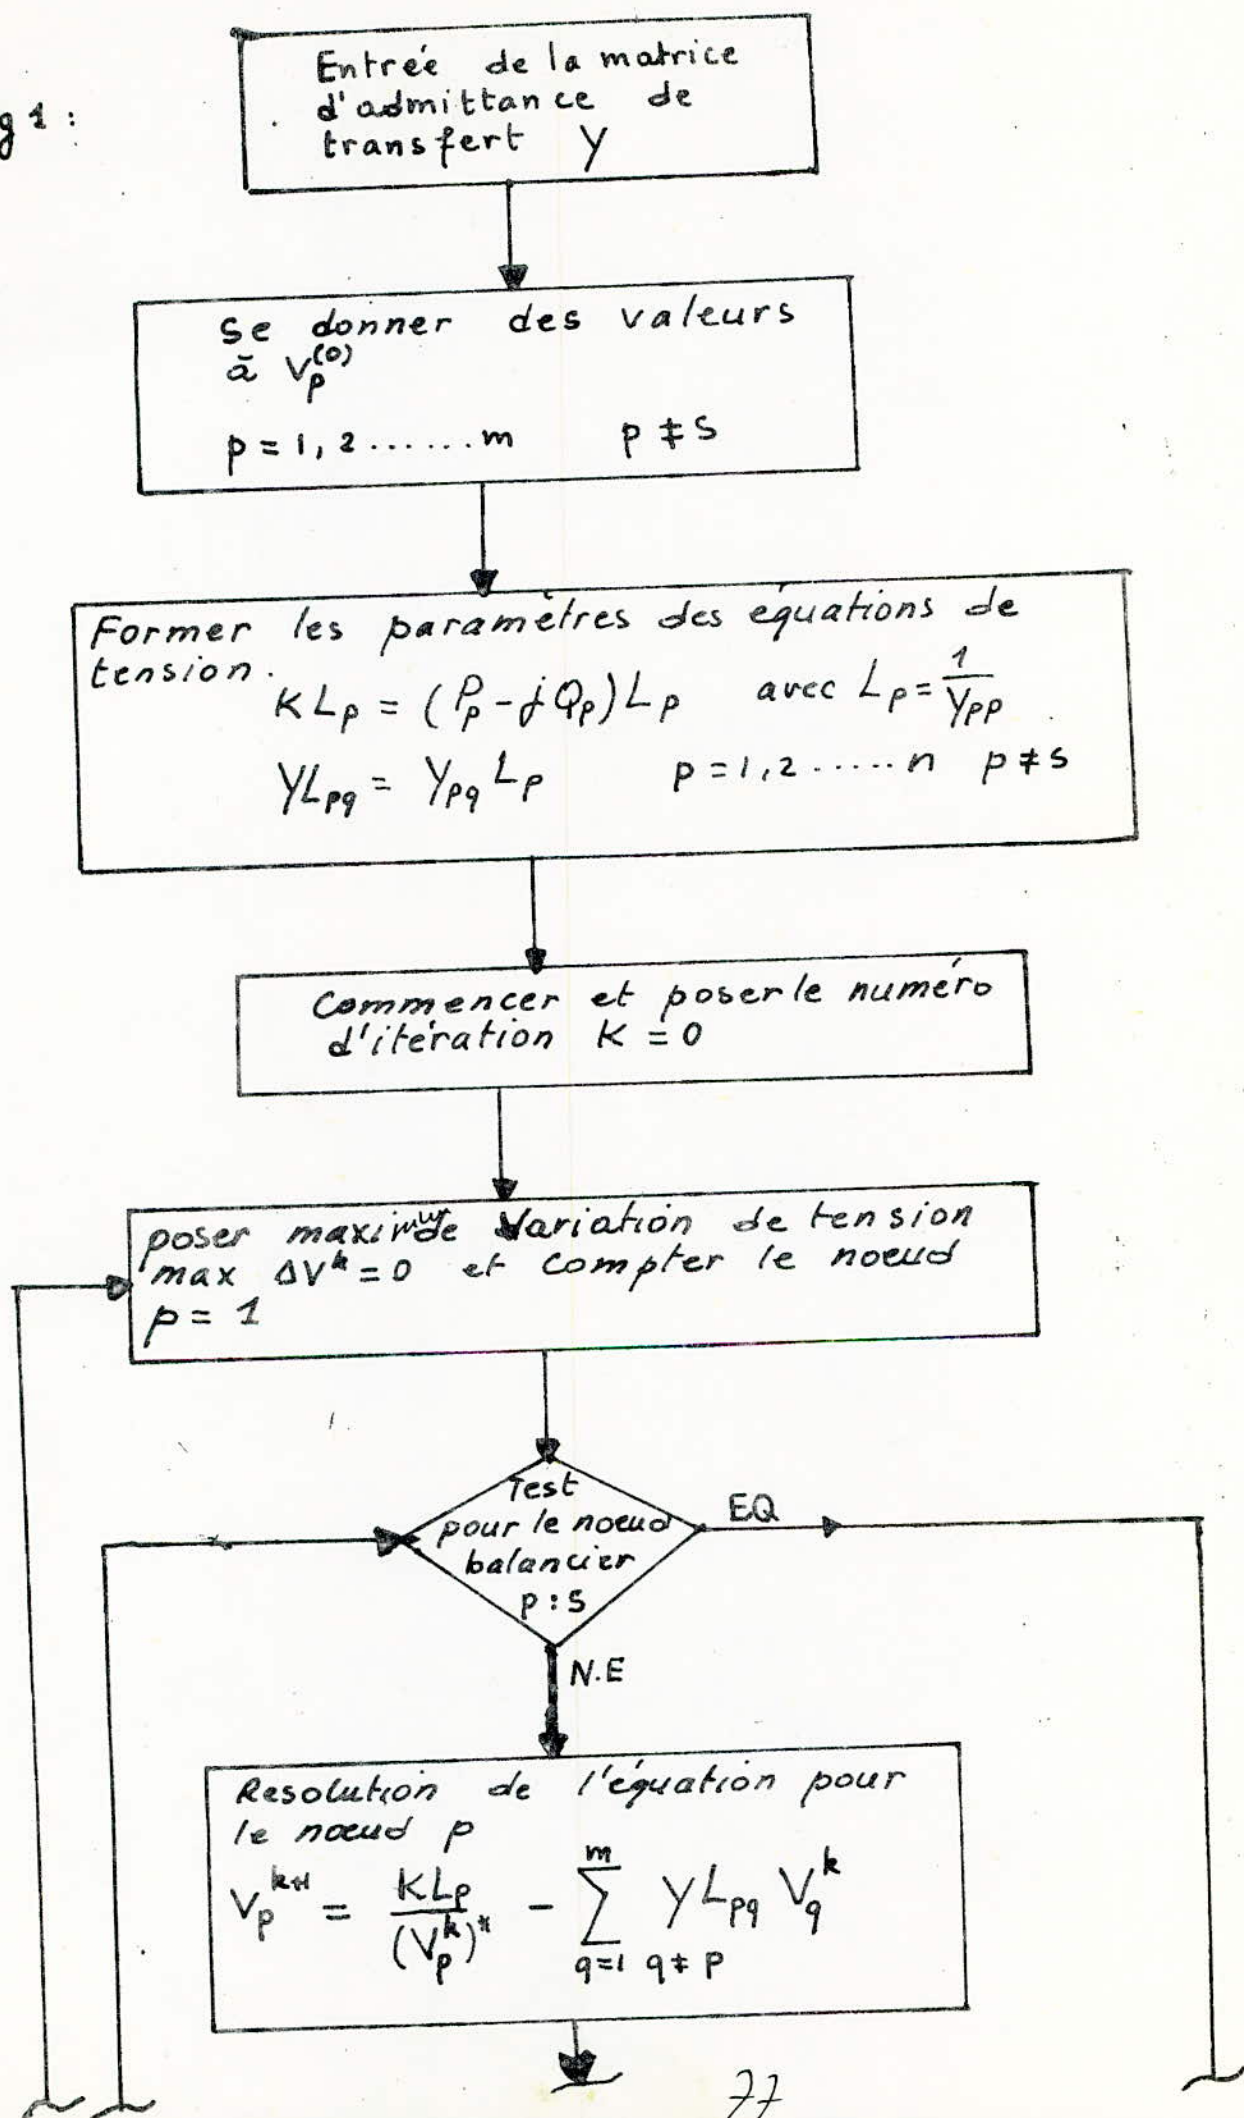 g 1 :
Entrée de la matrice
d'admittance de
transfert Y
Se donner des valeurs
à V_p^(0)
p = 1, 2 ...... m p ≠ S
Former les paramètres des équations de
tension.
KL_p = (P_p - jQ_p) L_p avec L_p = 1/Y_pp
YL_pq = Y_pq L_p p = 1, 2 ..... n p ≠ s
Commencer et poser le numéro
d'itération K = 0
poser variation de tension
max ΔV^k = 0 et compter le noeud
p = 1
Test
pour le noeud
balancier
p : S
EQ
N.E
Resolution de l'équation pour
le nœud p
V_p^k+1 = KL_p/(V_p^k)* - ∑_{q=1 q≠p}^m YL_pq V_q^k
77